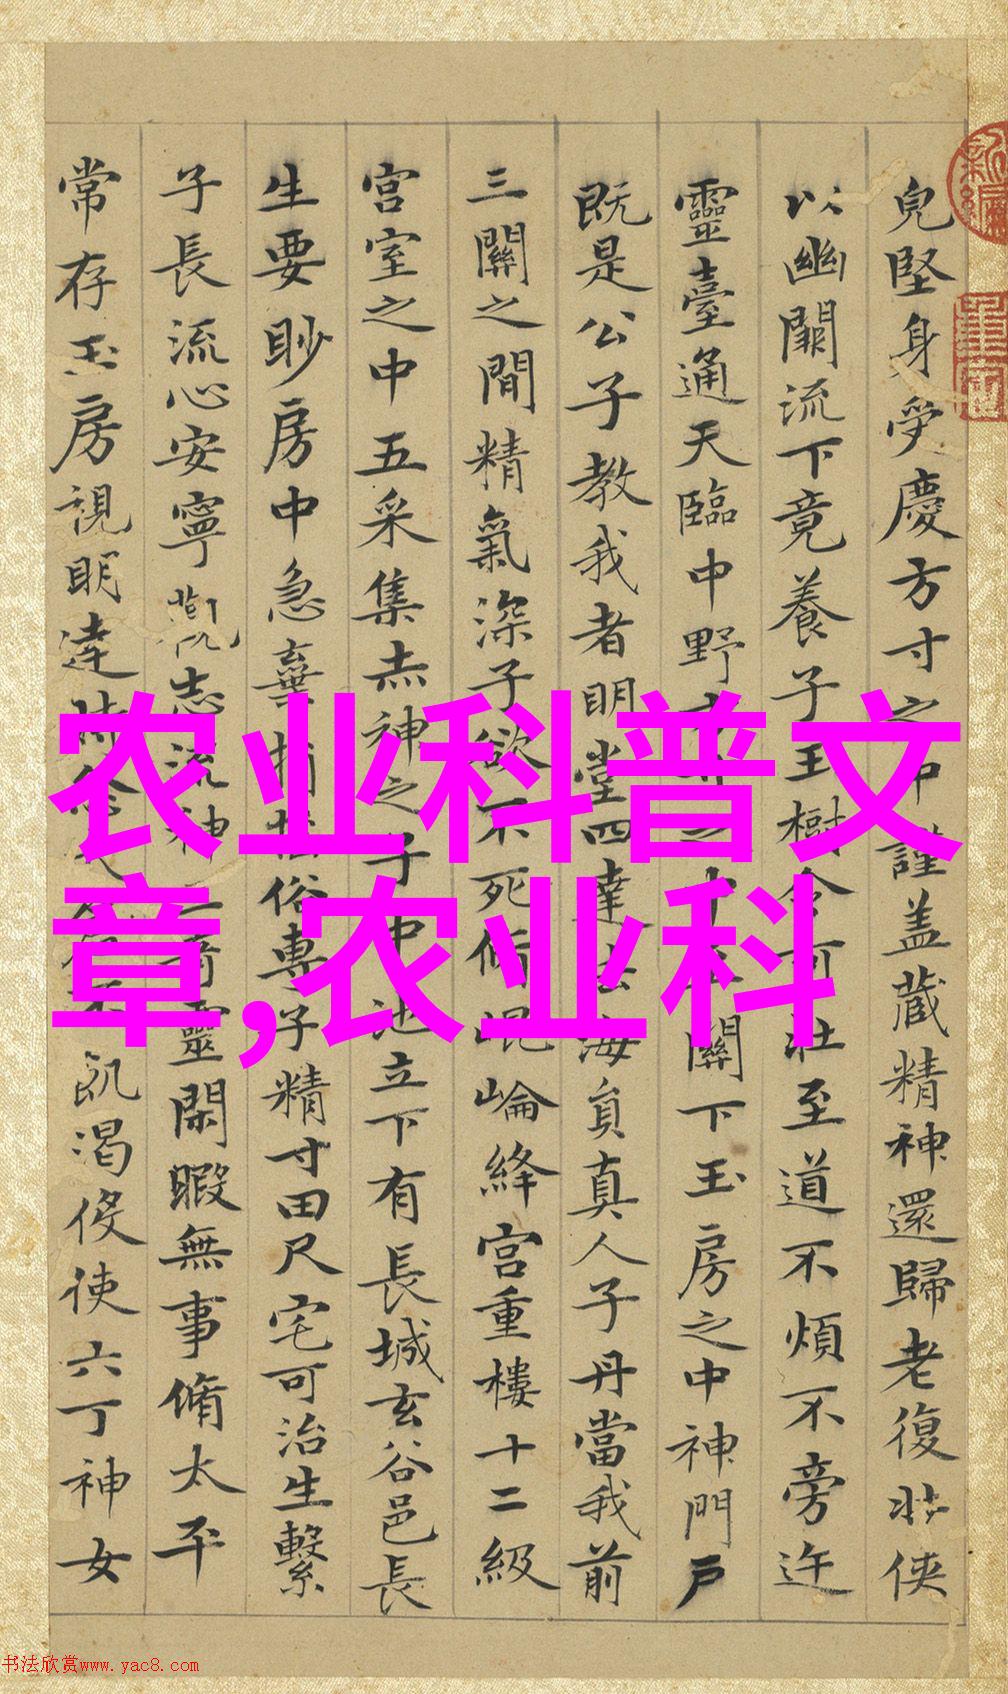 皃堅身受慶方寸之中謹盖蔵精神還歸老復壯侠
以幽闕流下竟養子玉樹令可壯至道不煩不旁迕
靈臺通天臨中野方寸之中至關下玉房之中神門戶
既是公子教我者明堂四達法海負真人子丹當我前
三關之間精氣深子欲不死脩崐崘絳宫重樓十二級
宫室之中五采集赤神之子中池立下有長城玄谷邑長
生要眇房中急棄捐俗專子精寸田尺宅可治生繫
子長流心安寧志流神靈閑暇無事脩太平
常存玉房視明達飢渴使六丁神女
农业科普文
章,农业科
书法欣赏www.yac8.com